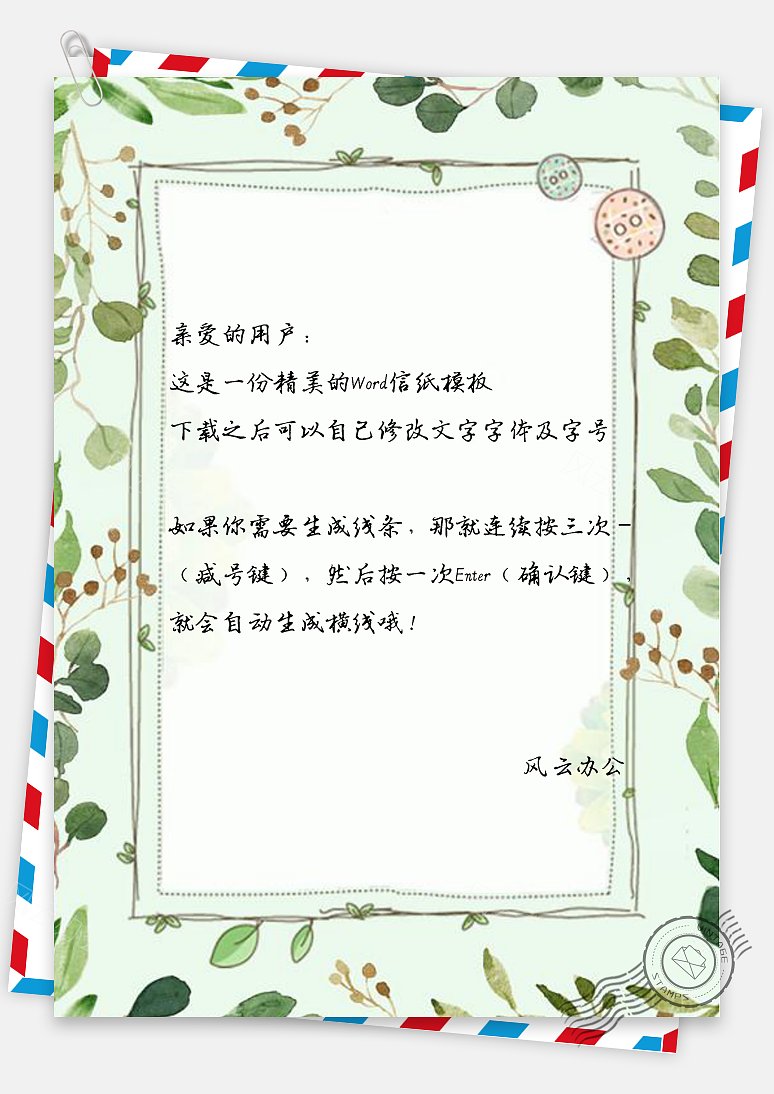 亲爱的用户：
这是一份精美的Word信纸模板
下载之后可以自己修改文字字体及字号
如果你需要生成线条，那就连续按三次-
（减号键），然后按一次Enter（确认键），
就会自动生成横线哦！
风云办公
VINTAGE
STAMPS